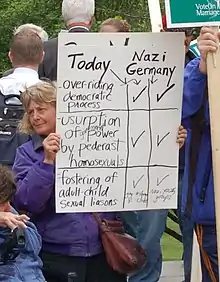 Vote On
Marriage
Today
Nazi
Germany
over-riding
democratic
process
usurption
of power
by pederast
homosexuals
fostering of
adult-child
sexual liasons